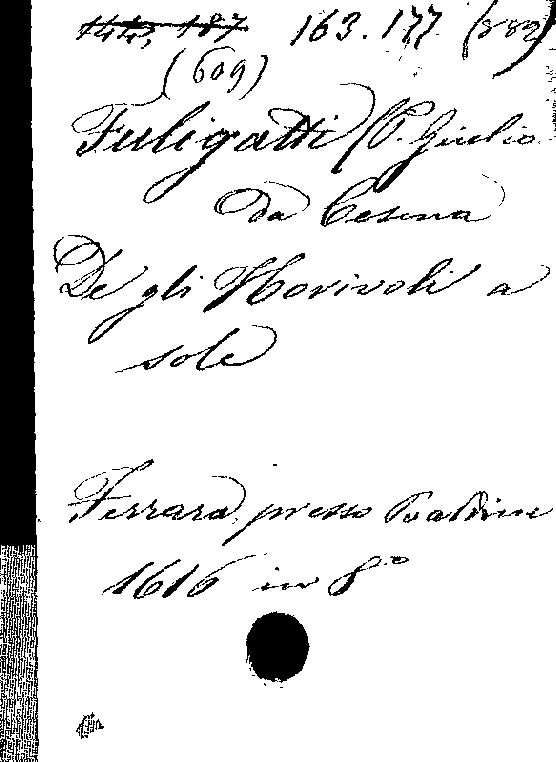 144, 187 163.177 (882)
(609)
Fuligatti (P. Giulio
da Cesena
De gli Horivoli a
sole
Ferrara, presso Baldini
1616 in 8°